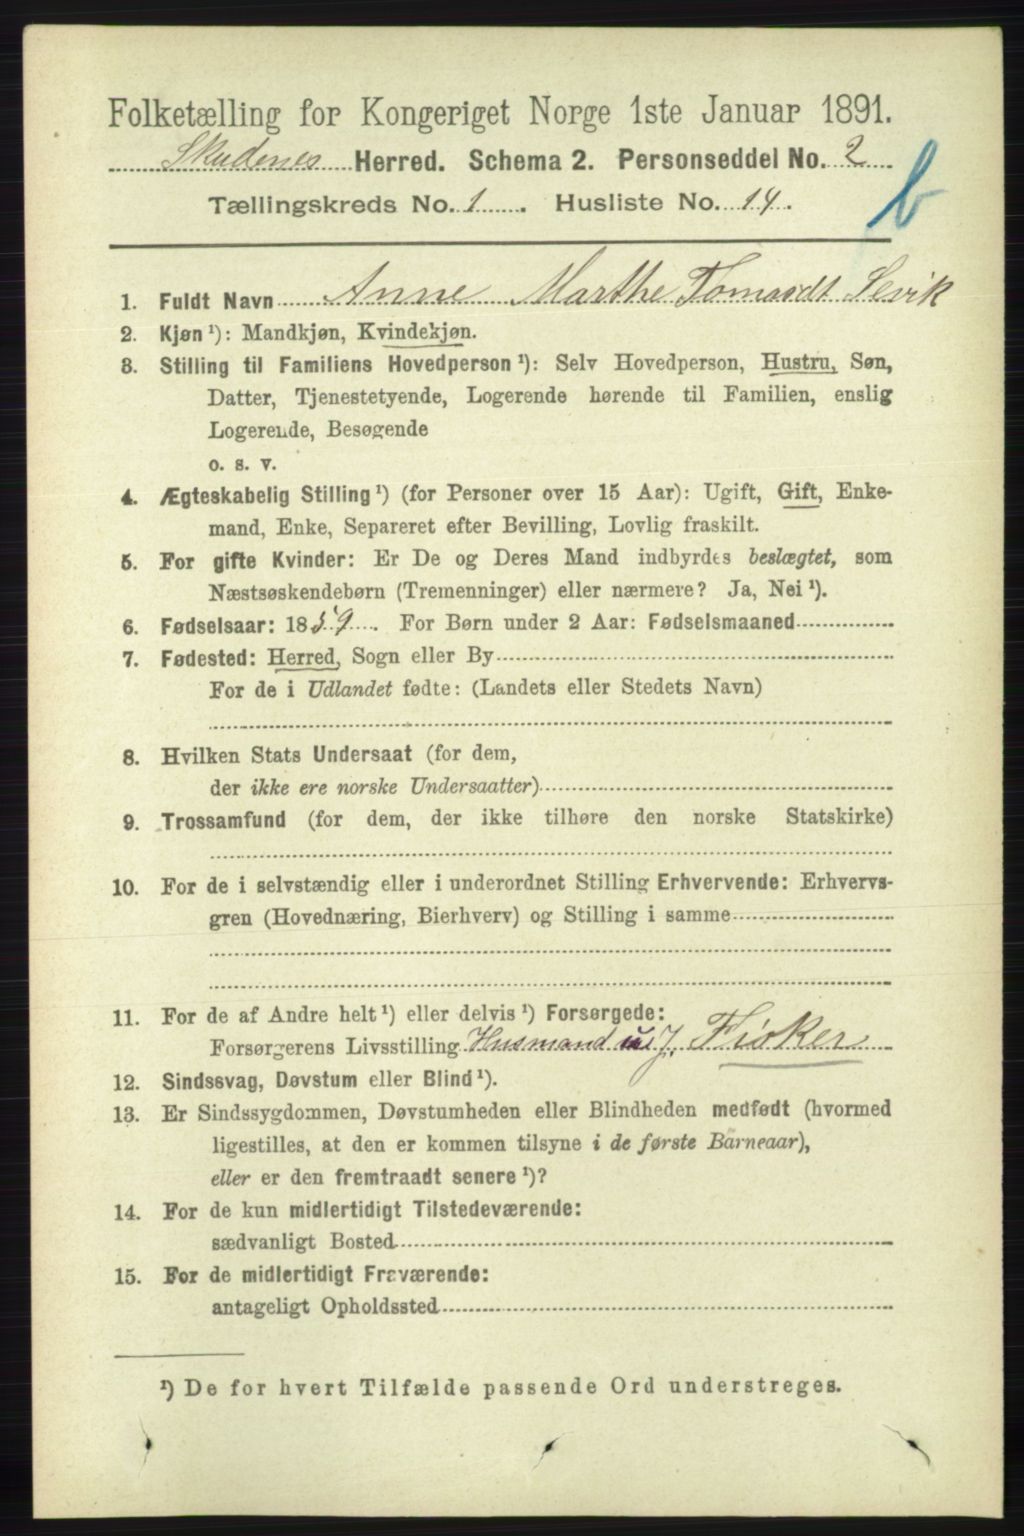 Folketælling for Kongeriget Norge 1ste Januar 1891.
Skudenes Herred. Schema 2. Personseddel No. 2
Tællingskreds No. 1. Husliste No. 14.
b
1. Fuldt Navn Anne Marthe Tomasdt Sevik
2. Kjøn ¹): Mandkjøn, Kvindekjøn.
3. Stilling til Familiens Hovedperson ¹): Selv Hovedperson, Hustru, Søn,
Datter, Tjenestetyende, Logerende hørende til Familien, enslig
Logerende, Besøgende
o. s. v.
4. Ægteskabelig Stilling ¹) (for Personer over 15 Aar): Ugift, Gift, Enke-
mand, Enke, Separeret efter Bevilling, Lovlig fraskilt.
5. For gifte Kvinder: Er De og Deres Mand indbyrdes beslægtet, som
Næstsøskendebørn (Tremenninger) eller nærmere? Ja, Nei ¹).
6. Fødselsaar: 1859. For Børn under 2 Aar: Fødselsmaaned
7. Fødested: Herred, Sogn eller By
For de i Udlandet fødte: (Landets eller Stedets Navn)
8. Hvilken Stats Undersaat (for dem,
der ikke ere norske Undersaatter)
9. Trossamfund (for dem, der ikke tilhøre den norske Statskirke)
10. For de i selvstændig eller i underordnet Stilling Erhvervende: Erhvervs-
gren (Hovednæring, Bierhverv) og Stilling i samme
11. For de af Andre helt ¹) eller delvis ¹) Forsørgede:
Forsørgerens Livsstilling Husmand u. J. Fisker
12. Sindssvag, Døvstum eller Blind ¹).
13. Er Sindssygdommen, Døvstumheden eller Blindheden medfødt (hvormed
ligestilles, at den er kommen tilsyne i de første Barneaar),
eller er den fremtraadt senere ¹)?
14. For de kun midlertidigt Tilstedeværende:
sædvanligt Bosted
15. For de midlertidigt Fraværende:
antageligt Opholdssted
¹) De for hvert Tilfælde passende Ord understreges.